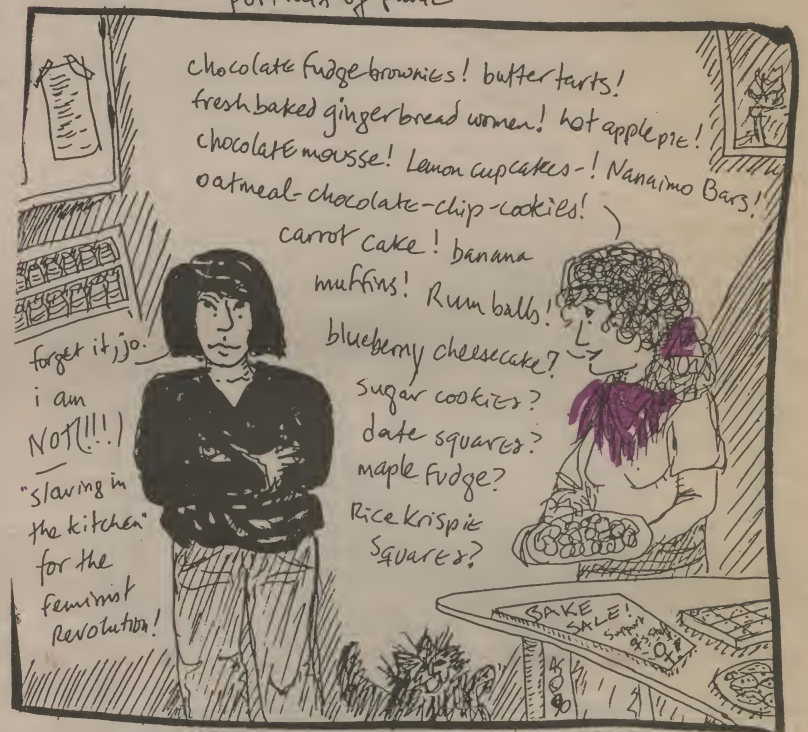 chocolate fudge brownies! butter tarts!
fresh baked gingerbread women! hot apple pie!
chocolate mousse! Lemon cupcakes-! Nanaimo Bars!
oatmeal-chocolate-chip-cookies!
carrot cake! banana
muffins! Rum balls!
blueberry cheesecake?
sugar cookies?
date squares?
maple fudge?
Rice Krispie
Squares?
forget it, jo.
i am
NOT(!!!)
"slaving in
the kitchen"
for the
feminist
Revolution!
BAKE
SALE!
Support